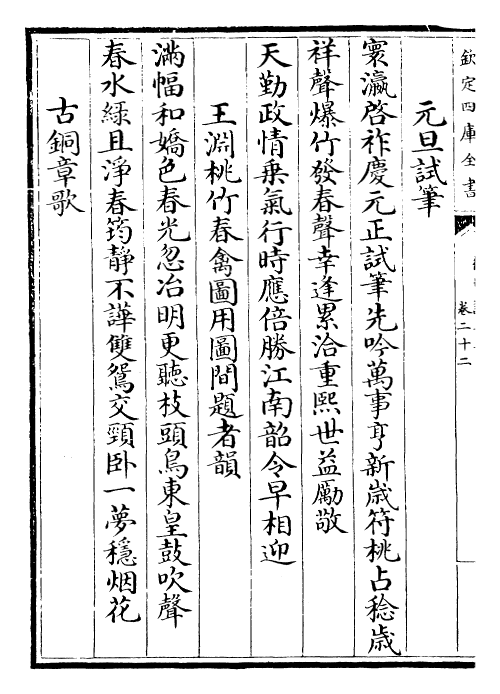 欽定四庫全書
卷二十二
元旦試筆
寰瀛啓祚慶元正試筆先吟萬事亨新歲符桃占稔歲
祥聲爆竹發春聲幸逢累洽重熙世益勵敬
天勤政情乗氣行時應倍勝江南韶令早相迎
王淵桃竹春禽圖用圖間題者韻
滿幅和嬌色春光忽冶明更聽枝頭鳥東皇鼓吹聲
春水緑且淨春筠靜不譁雙鴛交頸卧一夢穩烟花
古銅章歌